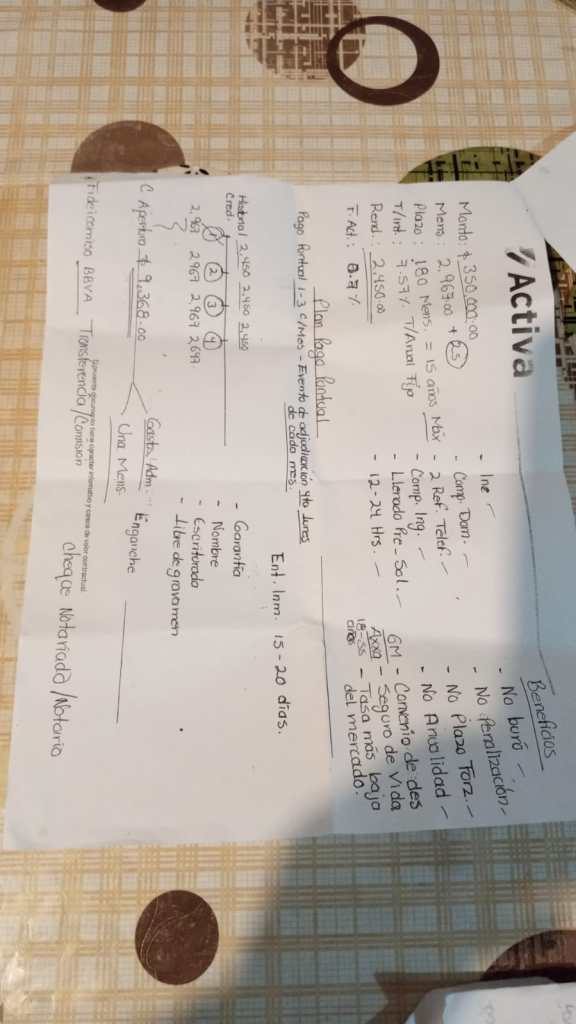 Activa
Monto: $ 350,000.00
Mens: 2,967.00 + 25
Plazo: 180 Mens. = 15 años Max
T/int.: 7.57% T/Anual Fijo
Rend.: 2,450.00
T. Act: 0.7%
- Ine -
- Comp. Dom. -
- 2 Ref. Telef. -
- Comp. Ing. -
- Llenado Pre-Sol. -
- 12-24 Hrs. -
Beneficios
- No buró -
- No Penalización -
- No Plazo Forz. -
- No Anualidad -
6M - Convenio de des
Axxa - Seguro de Vida
18-55 años - Tasa mas baja
del mercado.
Plan Pago Puntual
Pago Puntual 1-3 c/Mes - Evento de adjudicación 4to lunes
de cada mes.
Ent. Inm. 15-20 días.
Historial 2,450 2,450 2,450
Credi.
1 2 3 4
2,967 2,967 2,967 2,699
- Garantía
- Nombre
- Escriturada
- Libre de gravamen
C. Apertura $ 9,368.00
Gasto. Adm.
Una Mens.
Enganche
El presente documento tiene carácter informativo y carece de valor contractual
Fideicomiso BBVA Transferencia/Comisión Cheque Notariado/Notario